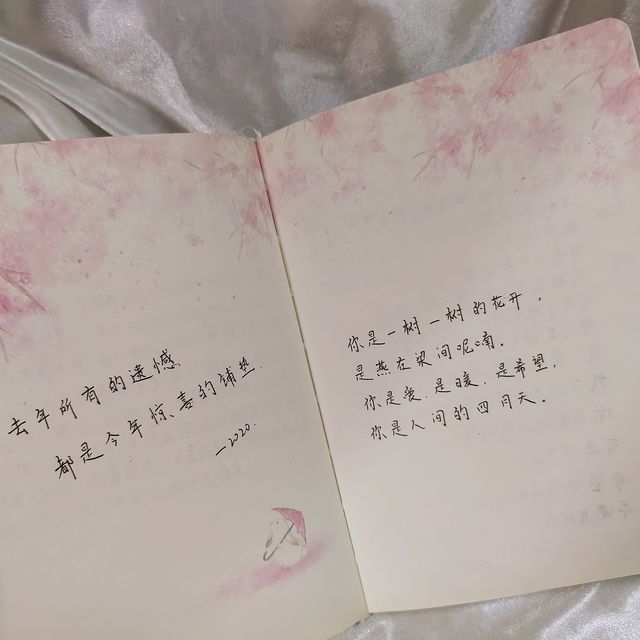 去年所有的遗憾
都是今年惊喜的铺垫
—2020.
你是一树一树的花开，
是燕在梁间呢喃。
你是爱、是暖、是希望，
你是人间的四月天。